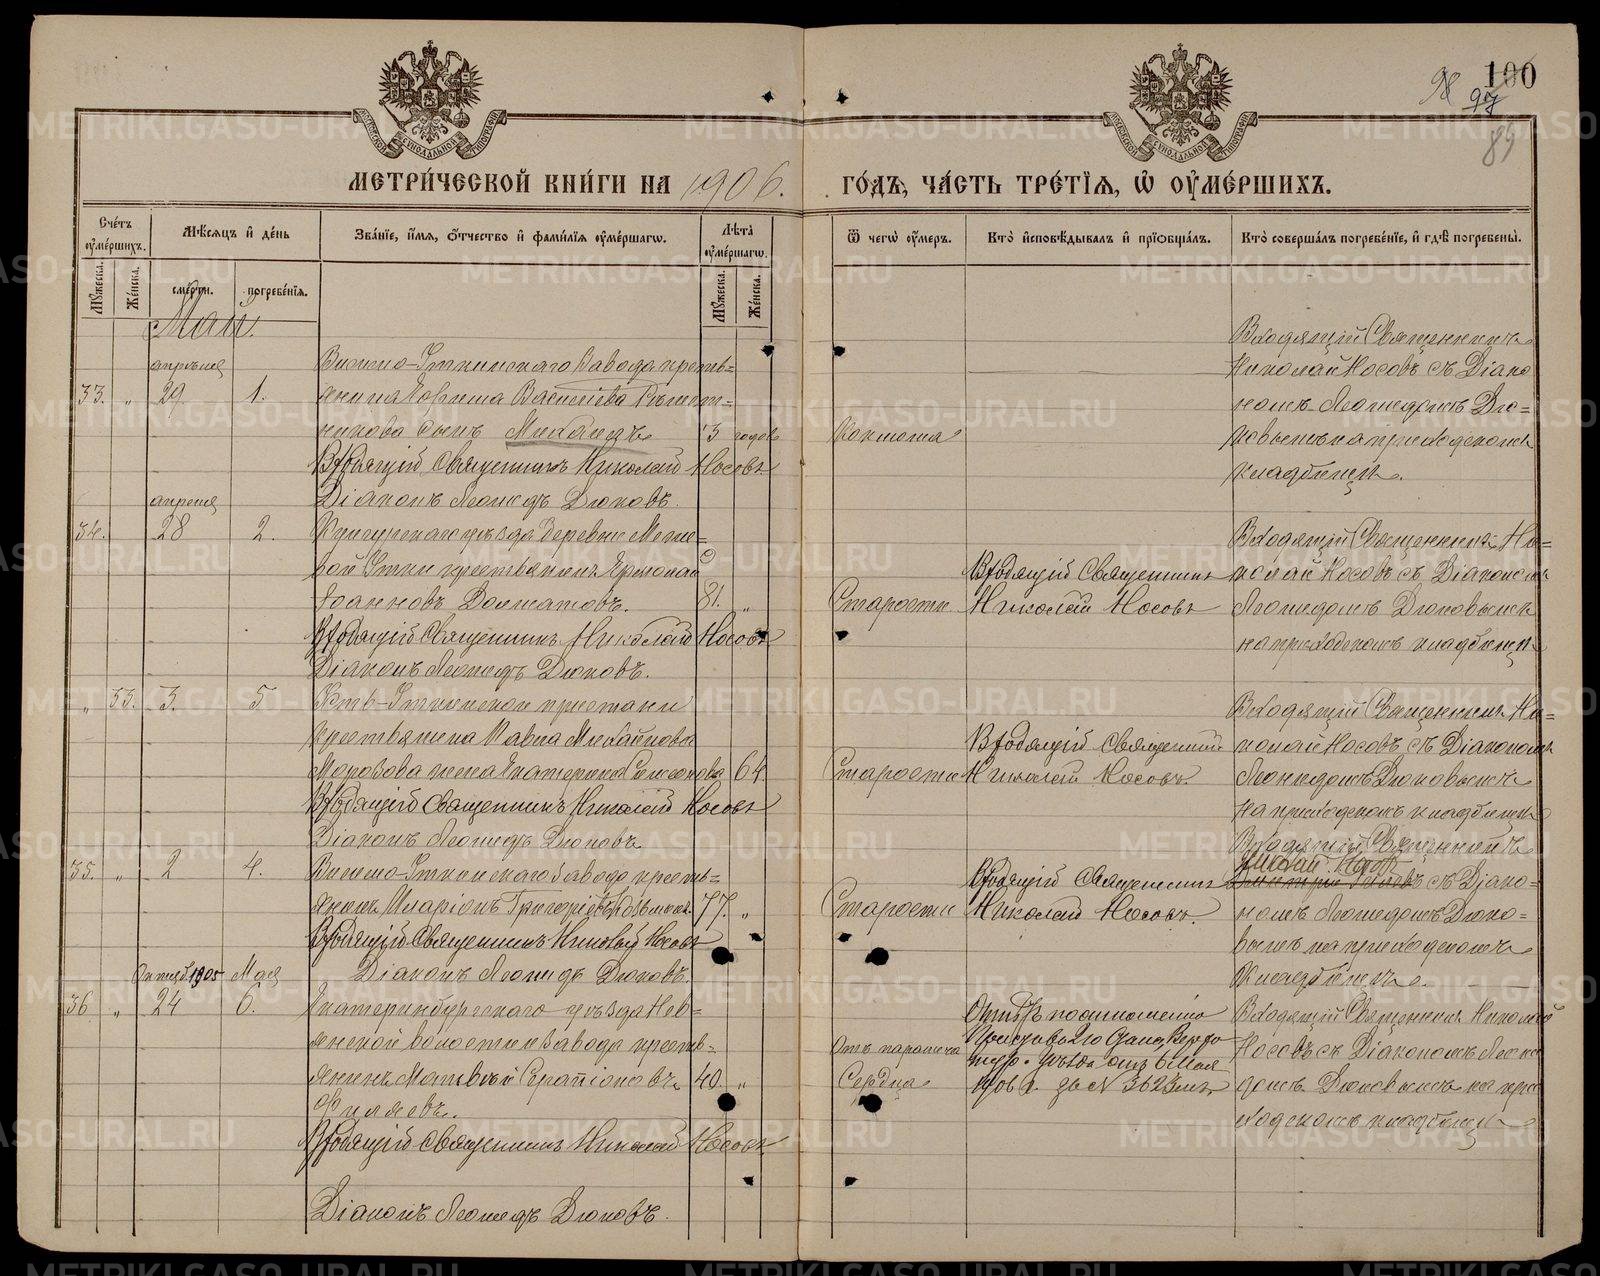 98
97
100
89
МЕТРИ́ЧЕСКОЙ КНИ́ГИ НА 1906. ГО́ДЪ, ЧА́СТЬ ТРЕ́ТІѦ, Ѡ҆ ОУ҆МЕ́РШИХЪ.
Сче́тъ оу҆ме́ршихъ.
Мꙋ́жеска.
Же́нска.
Мѣ́сяцъ и҆ де́нь
сме́рти.
погребе́нїѧ.
Зва́нїе, и҆́мѧ, ѻ҆́тчество и҆ фами́лїѧ оу҆ме́ршагѡ.
Лѣ́та оу҆ме́ршагѡ.
Мꙋ́жеска.
Же́нска.
Ѿ чегѡ̀ оу҆́меръ.
Кто̀ и҆сповѣ́дывалъ и҆ прїѻбща́лъ.
Кто̀ соверша́лъ погребе́нїе, и҆ гдѣ̀ погребены̀.
Май.
апрѣля
33. " 29 1.
Висимо-Уткинскаго Завода кресть=
янина Василіева
никова сынъ Михаилъ 3 годов
Входящій Священникъ Николай Носовъ
Діаконъ Леонидъ Дюковъ.
Входящій Священникъ
Николай Носовъ съ Діако
номъ Леонидомъ Дю=
ковымъ на приходскомъ
кладбищѣ.
апреля
34. 28 2.
Кунгурскаго уѣзда деревни
Утки крестьянинъ Ермолай
Іоанновъ Долматовъ. 81. "
Входящій Священникъ Николай Носовъ
Діаконъ Леонидъ Дюковъ.
Старости
Входящій Священникъ
Николай Носовъ
Входящій Священникъ Ни=
колай Носовъ съ Діакономъ
Леонидомъ Дюковымъ
на приходскомъ кладбищѣ
" 33. 3. 5.
Усть-Уткинской пристани
крестьянина Павла Михайлова
Морозова жена Екатерина Симеонова 64.
Входящій Священникъ Николай Носовъ
Діаконъ Леонидъ Дюковъ
Старости
Входящій Священникъ
Николай Носовъ
Входящій Священникъ Ни=
колай Носовъ съ Діакономъ
Леонидомъ Дюковымъ
на приходскомъ кладбищѣ
35. " 2 4.
Висимо-Уткинскаго Завода кресть=
янинъ Иларіонъ Григоріевъ 77. "
Входящій Священникъ Николай Носовъ
Діаконъ Леонидъ Дюковъ.
Старости
Входящій Священникъ
Николай Носовъ.
Входящій Священникъ
Николай Носовъ
съ Діако=
номъ Леонидомъ Дюко=
вымъ на приходскомъ
кладбищѣ.
Октяб. 1905 Мая
36 " 24 6.
Екатеринбургскаго уѣзда Нев=
янской волости и Завода кресть=
янинъ Матвѣй Серапіоновъ 40. "
Филяевъ.
Входящій Священникъ Николай Носовъ
Діаконъ Леонидъ Дюковъ.
Отъ паралича
Сердца
по отношенію
Пристава 2го Стана Верхо
уѣзда отъ 6 Мая
1906 г. за № 3623
Входящій Священникъ Николай
Носовъ съ Діакономъ Леони
домъ Дюковымъ на при
ходскомъ кладбищѣ
METRIKI.GASO-URAL.RU